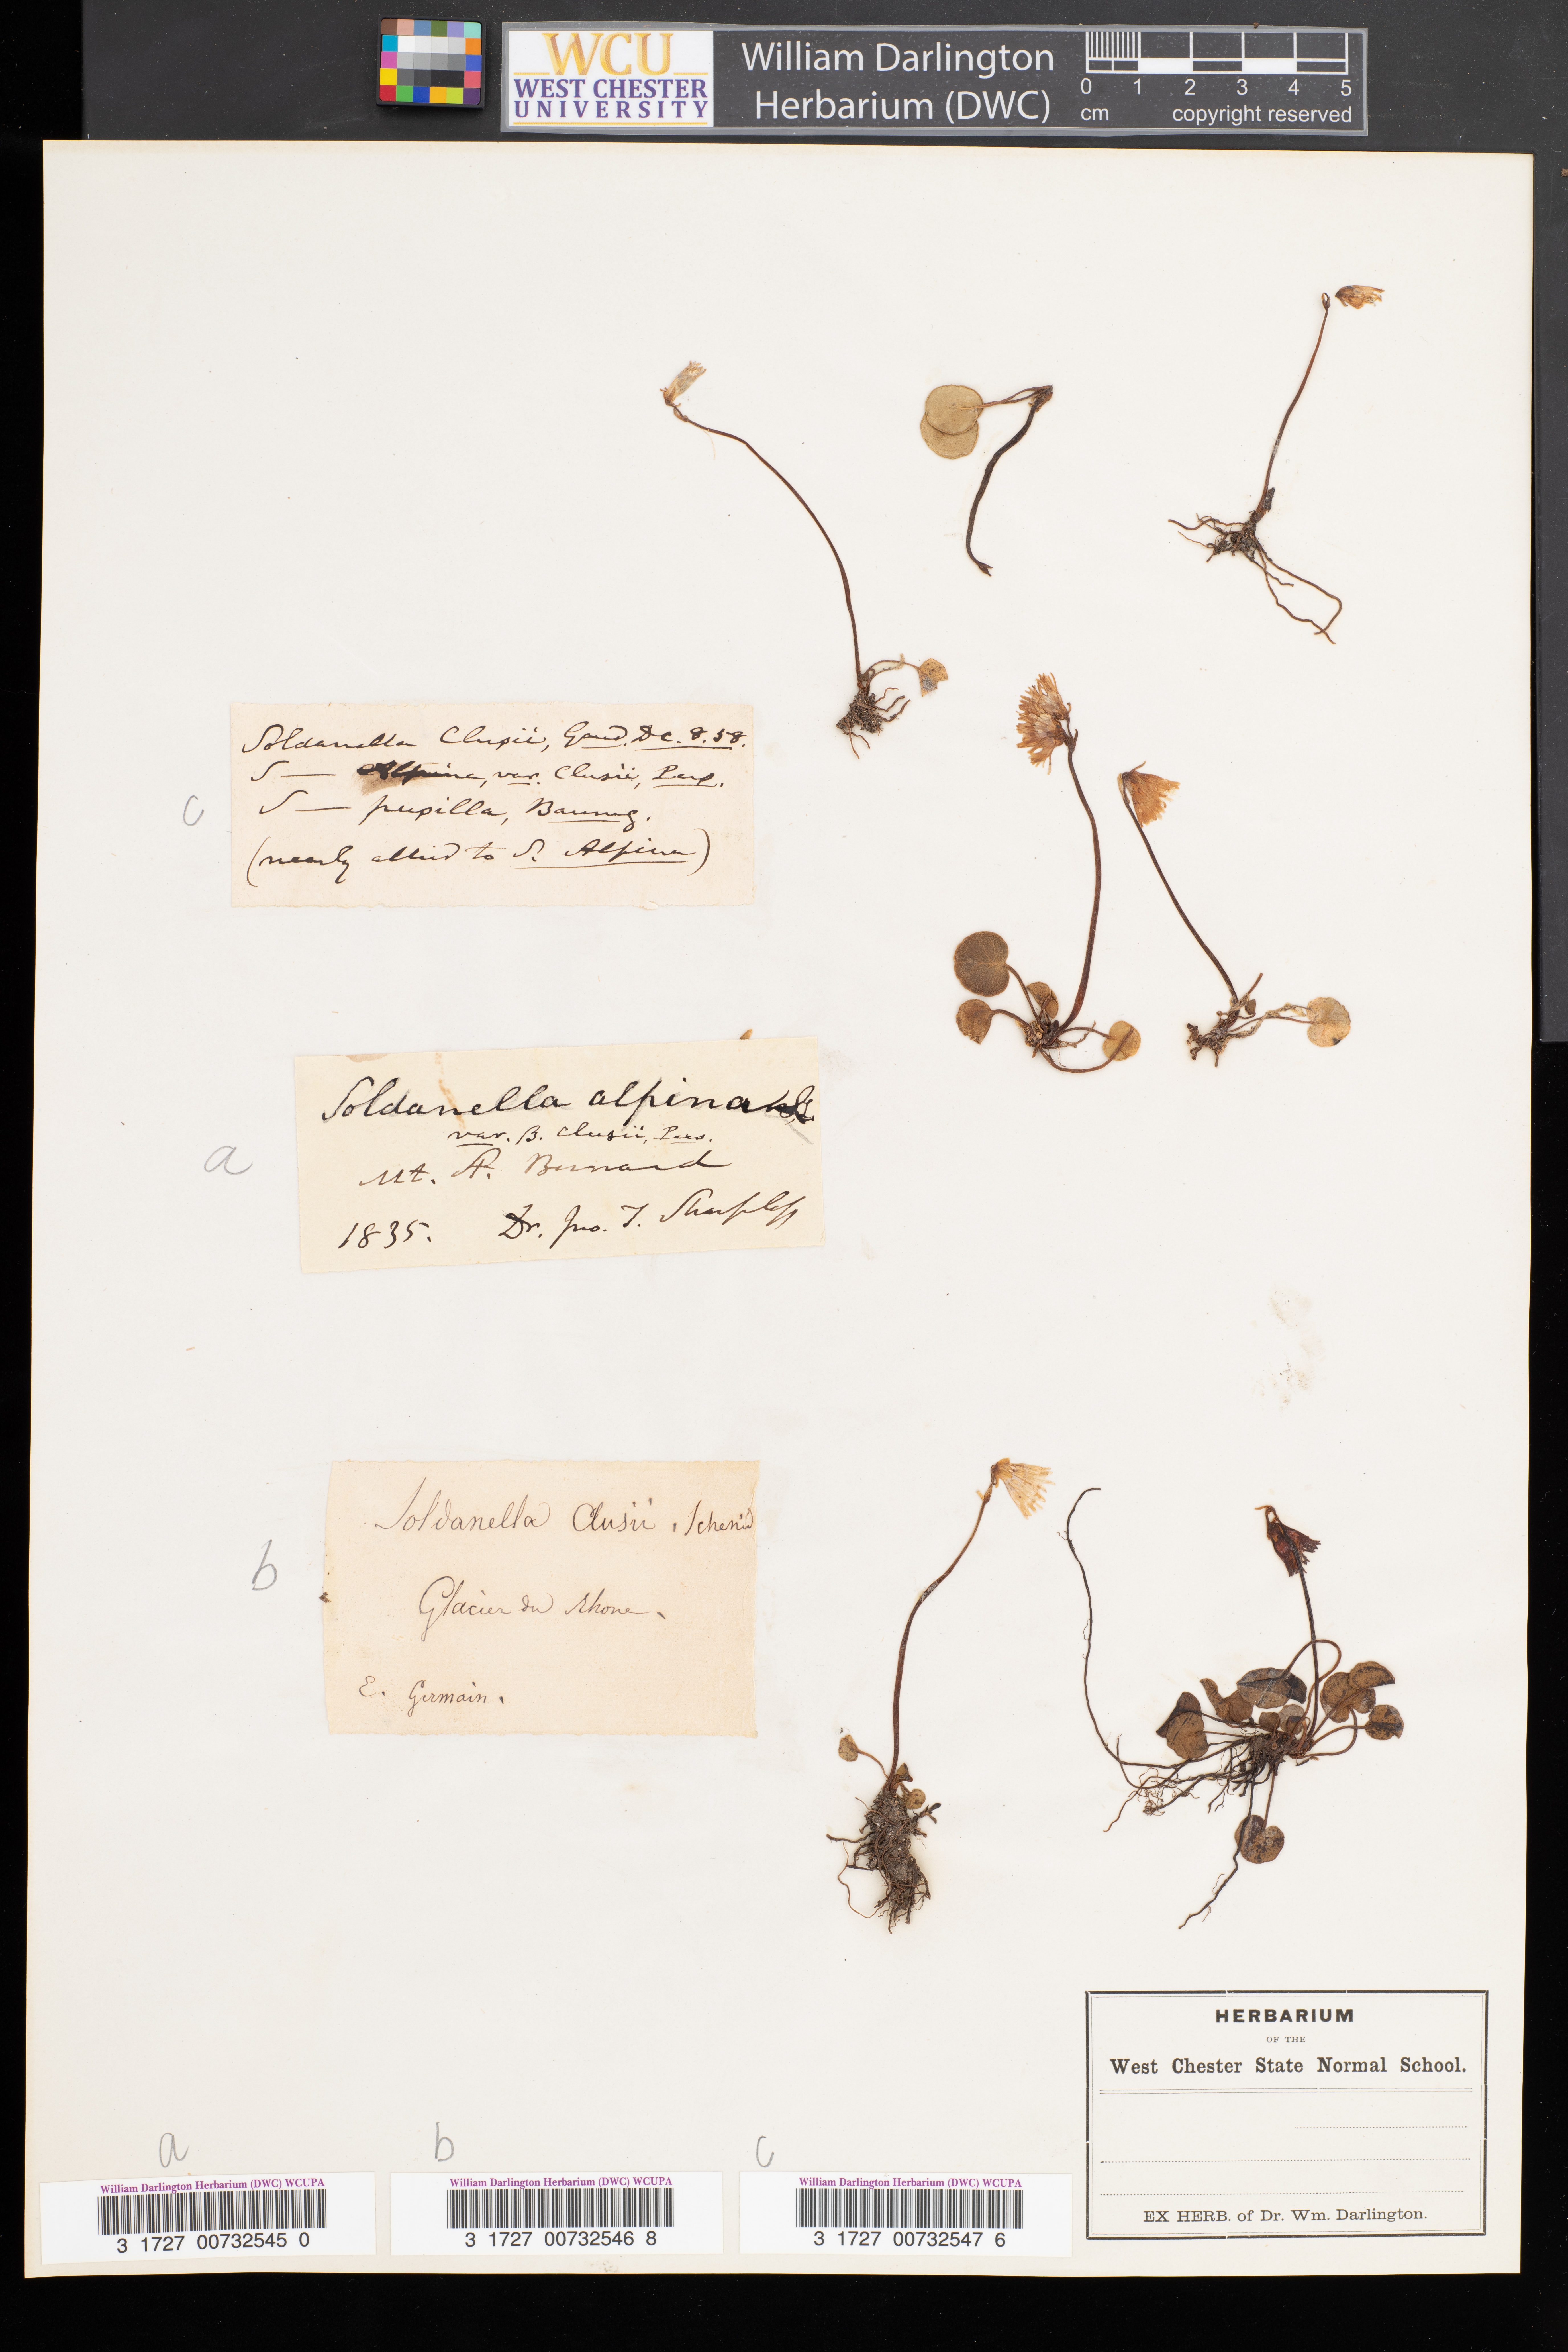 WCU
WEST CHESTER
UNIVERSITY
William Darlington
Herbarium (DWC)
0 1 2 3 4 5
cm copyright reserved
Soldanella Clusii, Gaud. DC. 8. 58.
S — Alpina, var. Clusii, Pers.
S — pusilla, Baumg.
(nearly allied to S. Alpina)
c
Soldanella alpina
var. B. Clusii, Pers.
a
Mt. St. Bernard
1835. Dr. Jno. T. Sharpless
Soldanella Clusii, Schmid
b
Glacier du Rhone.
E. Germain.
HERBARIUM
OF THE
West Chester State Normal School.
EX HERB. of Dr. Wm. Darlington.
a b c
William Darlington Herbarium (DWC) WCUPA
3 1727 00732545 0
William Darlington Herbarium (DWC) WCUPA
3 1727 00732546 8
William Darlington Herbarium (DWC) WCUPA
3 1727 00732547 6